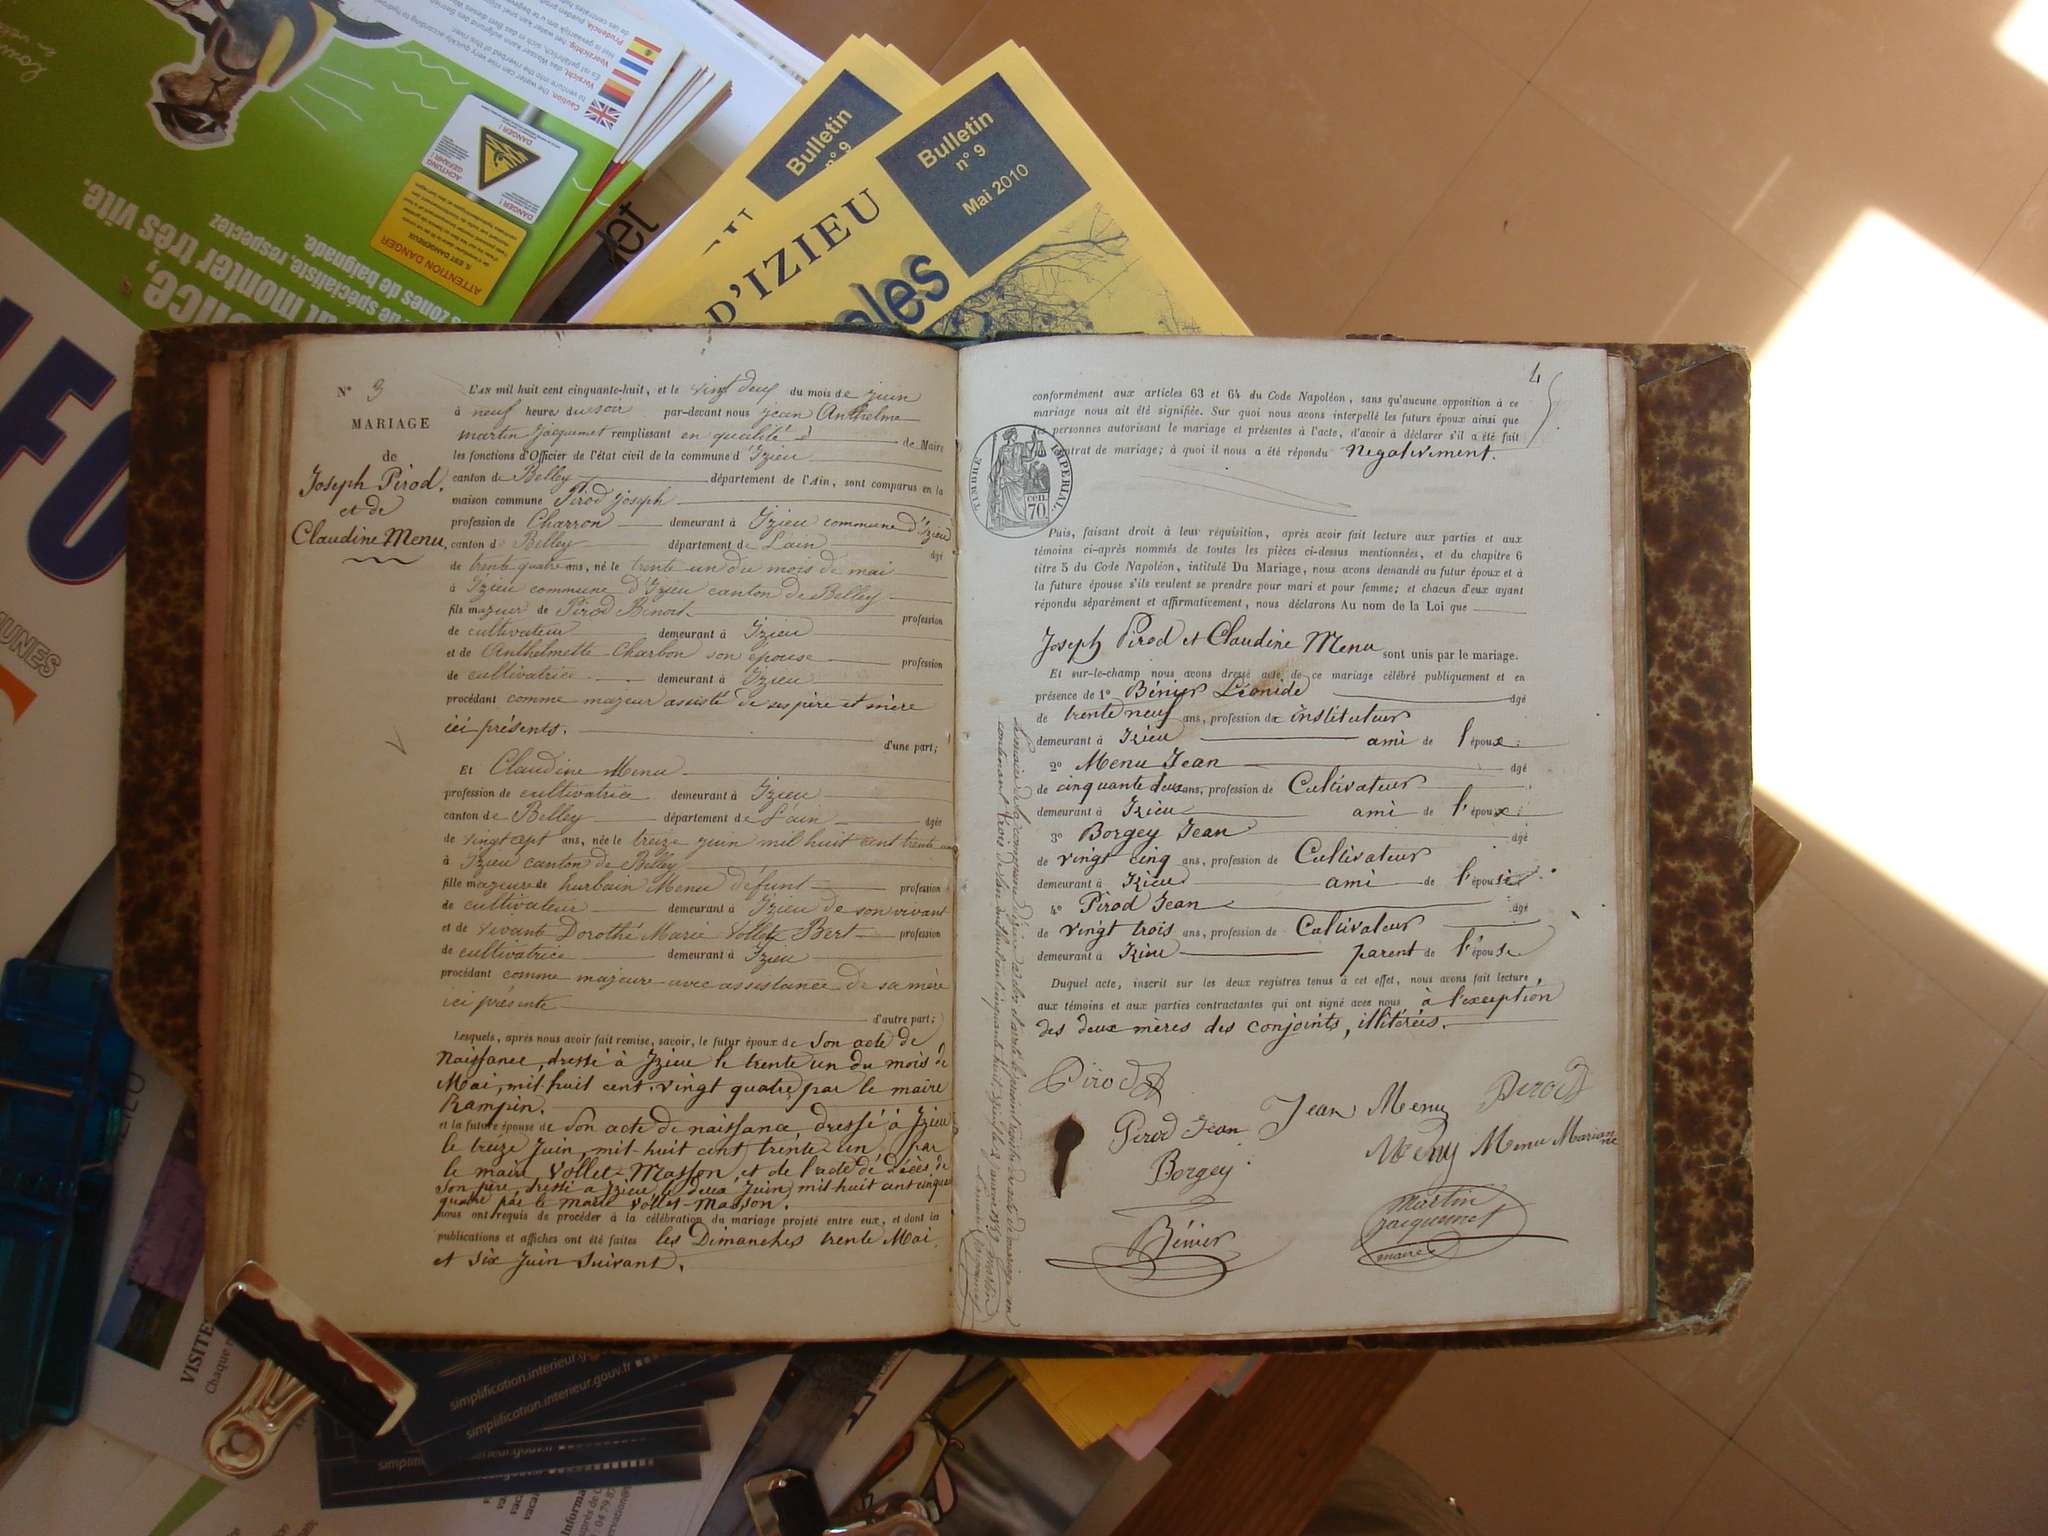 N° 3
MARIAGE
de
Joseph Pirod,
et de
Claudine Menu,
L'AN mil huit cent cinquante-huit, et le vingt deux du mois de juin
à neuf heure du soir par-devant nous jean Anthelme
martin jacquemet remplissant en qualité d de Maire
les fonctions d'Officier de l'état civil de la commune d'Izieu
canton de Belley département de l'Ain, sont comparus en la
maison commune Pirod joseph
profession de Charron demeurant à Izieu commune d'Izieu
canton d Belley département de L'ain âgé
de trente quatre ans, né le trente un du mois de mai
à Izieu commune d'Izieu canton de Belley
fils majeur de Pirod Benoit profession
de cultivateur demeurant à Izieu
et de Anthelmette Charbon son épouse profession
de cultivatrice demeurant à Izieu
procédant comme majeur assisté de ses père et mère
ici présents. d'une part;
Et Claudine Menu
profession de cultivatrice demeurant à Izieu
canton de Belley département de L'ain âgée
de vingt sept ans, née le treize juin mil huit cent trente un
à Izieu canton de Belley
fille majeure de hurbain Menu défunt profession
de cultivateur demeurant à Izieu de son vivant
et de vivante Dorothé Marie Vollet Bert profession
de cultivatrice demeurant à Izieu
procédant comme majeure avec assistance de sa mère
ici présente d'autre part;
Lesquels, après nous avoir fait remise, savoir, le futur époux de Son acte de
naissance, dressé à Izieu le trente un du mois de
Mai, mil-huit cent-vingt quatre, par le maire
Rampin.
et la future épouse de Son acte de naissance dressé à Izieu
le treize Juin, mil-huit cent trente-un, par
le maire Vollet-Masson, et de l'acte de décès de
Son père, dressé à Izieu, le deux Juin, mil-huit cent cinquante
quatre par le maire Vollet-Masson.
nous ont requis de procéder à la célébration du mariage projeté entre eux, et dont la
publications et affiches ont été faites les Dimanches trente Mai
et six Juin suivant.
4
conformément aux articles 63 et 64 du Code Napoléon, sans qu'aucune opposition à ce
mariage nous ait été signifiée. Sur quoi nous avons interpellé les futurs époux ainsi que
personnes autorisant le mariage et présentes à l'acte, d'avoir à déclarer s'il a été fait
contrat de mariage; à quoi il nous a été répondu Négativement.
TIMBRE IMPERIAL
cen.
70.
Puis, faisant droit à leur réquisition, après avoir fait lecture aux parties et aux
témoins ci-après nommés de toutes les pièces ci-dessus mentionnées, et du chapitre 6
titre 5 du Code Napoléon, intitulé Du Mariage, nous avons demandé au futur époux et à
la future épouse s'ils veulent se prendre pour mari et pour femme; et chacun d'eux ayant
répondu séparément et affirmativement, nous déclarons Au nom de la Loi que
Joseph Pirod et Claudine Menu sont unis par le mariage.
Et sur-le-champ nous avons dressé acte de ce mariage célébré publiquement et en
présence de 1° Bénier Léonide âgé
de trente neuf ans, profession de instituteur
demeurant à Izieu ami de l'époux;
2° Menu Jean âgé
de cinquante deux ans, profession de Cultivateur
demeurant à Izieu ami de l'époux;
3° Borgey Jean âgé
de vingt cinq ans, profession de Cultivateur
demeurant à Izieu ami de l'épouse
4° Pirod Jean âgé
de vingt trois ans, profession de Cultivateur
demeurant à Izieu parent de l'épouse
Duquel acte, inscrit sur les deux registres tenus à cet effet, nous avons fait lecture
aux témoins et aux parties contractantes qui ont signé avec nous à l'exception
des deux mères des conjoints, illitérées.
Pirod
Pirod Jean
Jean Menu
Pirod
Borgey
Menu
Menu Marianne
Bénier
Martin
jacquemet
maire
Bulletin
n° 9
Bulletin
n° 9
Mai 2010
D'IZIEU
ATTENTION DANGER
IL EST DANGEREUX
ACHTUNG
GEFAHR !
DANGER !
DANGER !
monter très vite.
spécialiste, respectez
zones de baignade.
UNES
VISITE
Chaque
simplification.interieur.gouv.fr
simplification.interieur.gouv.fr